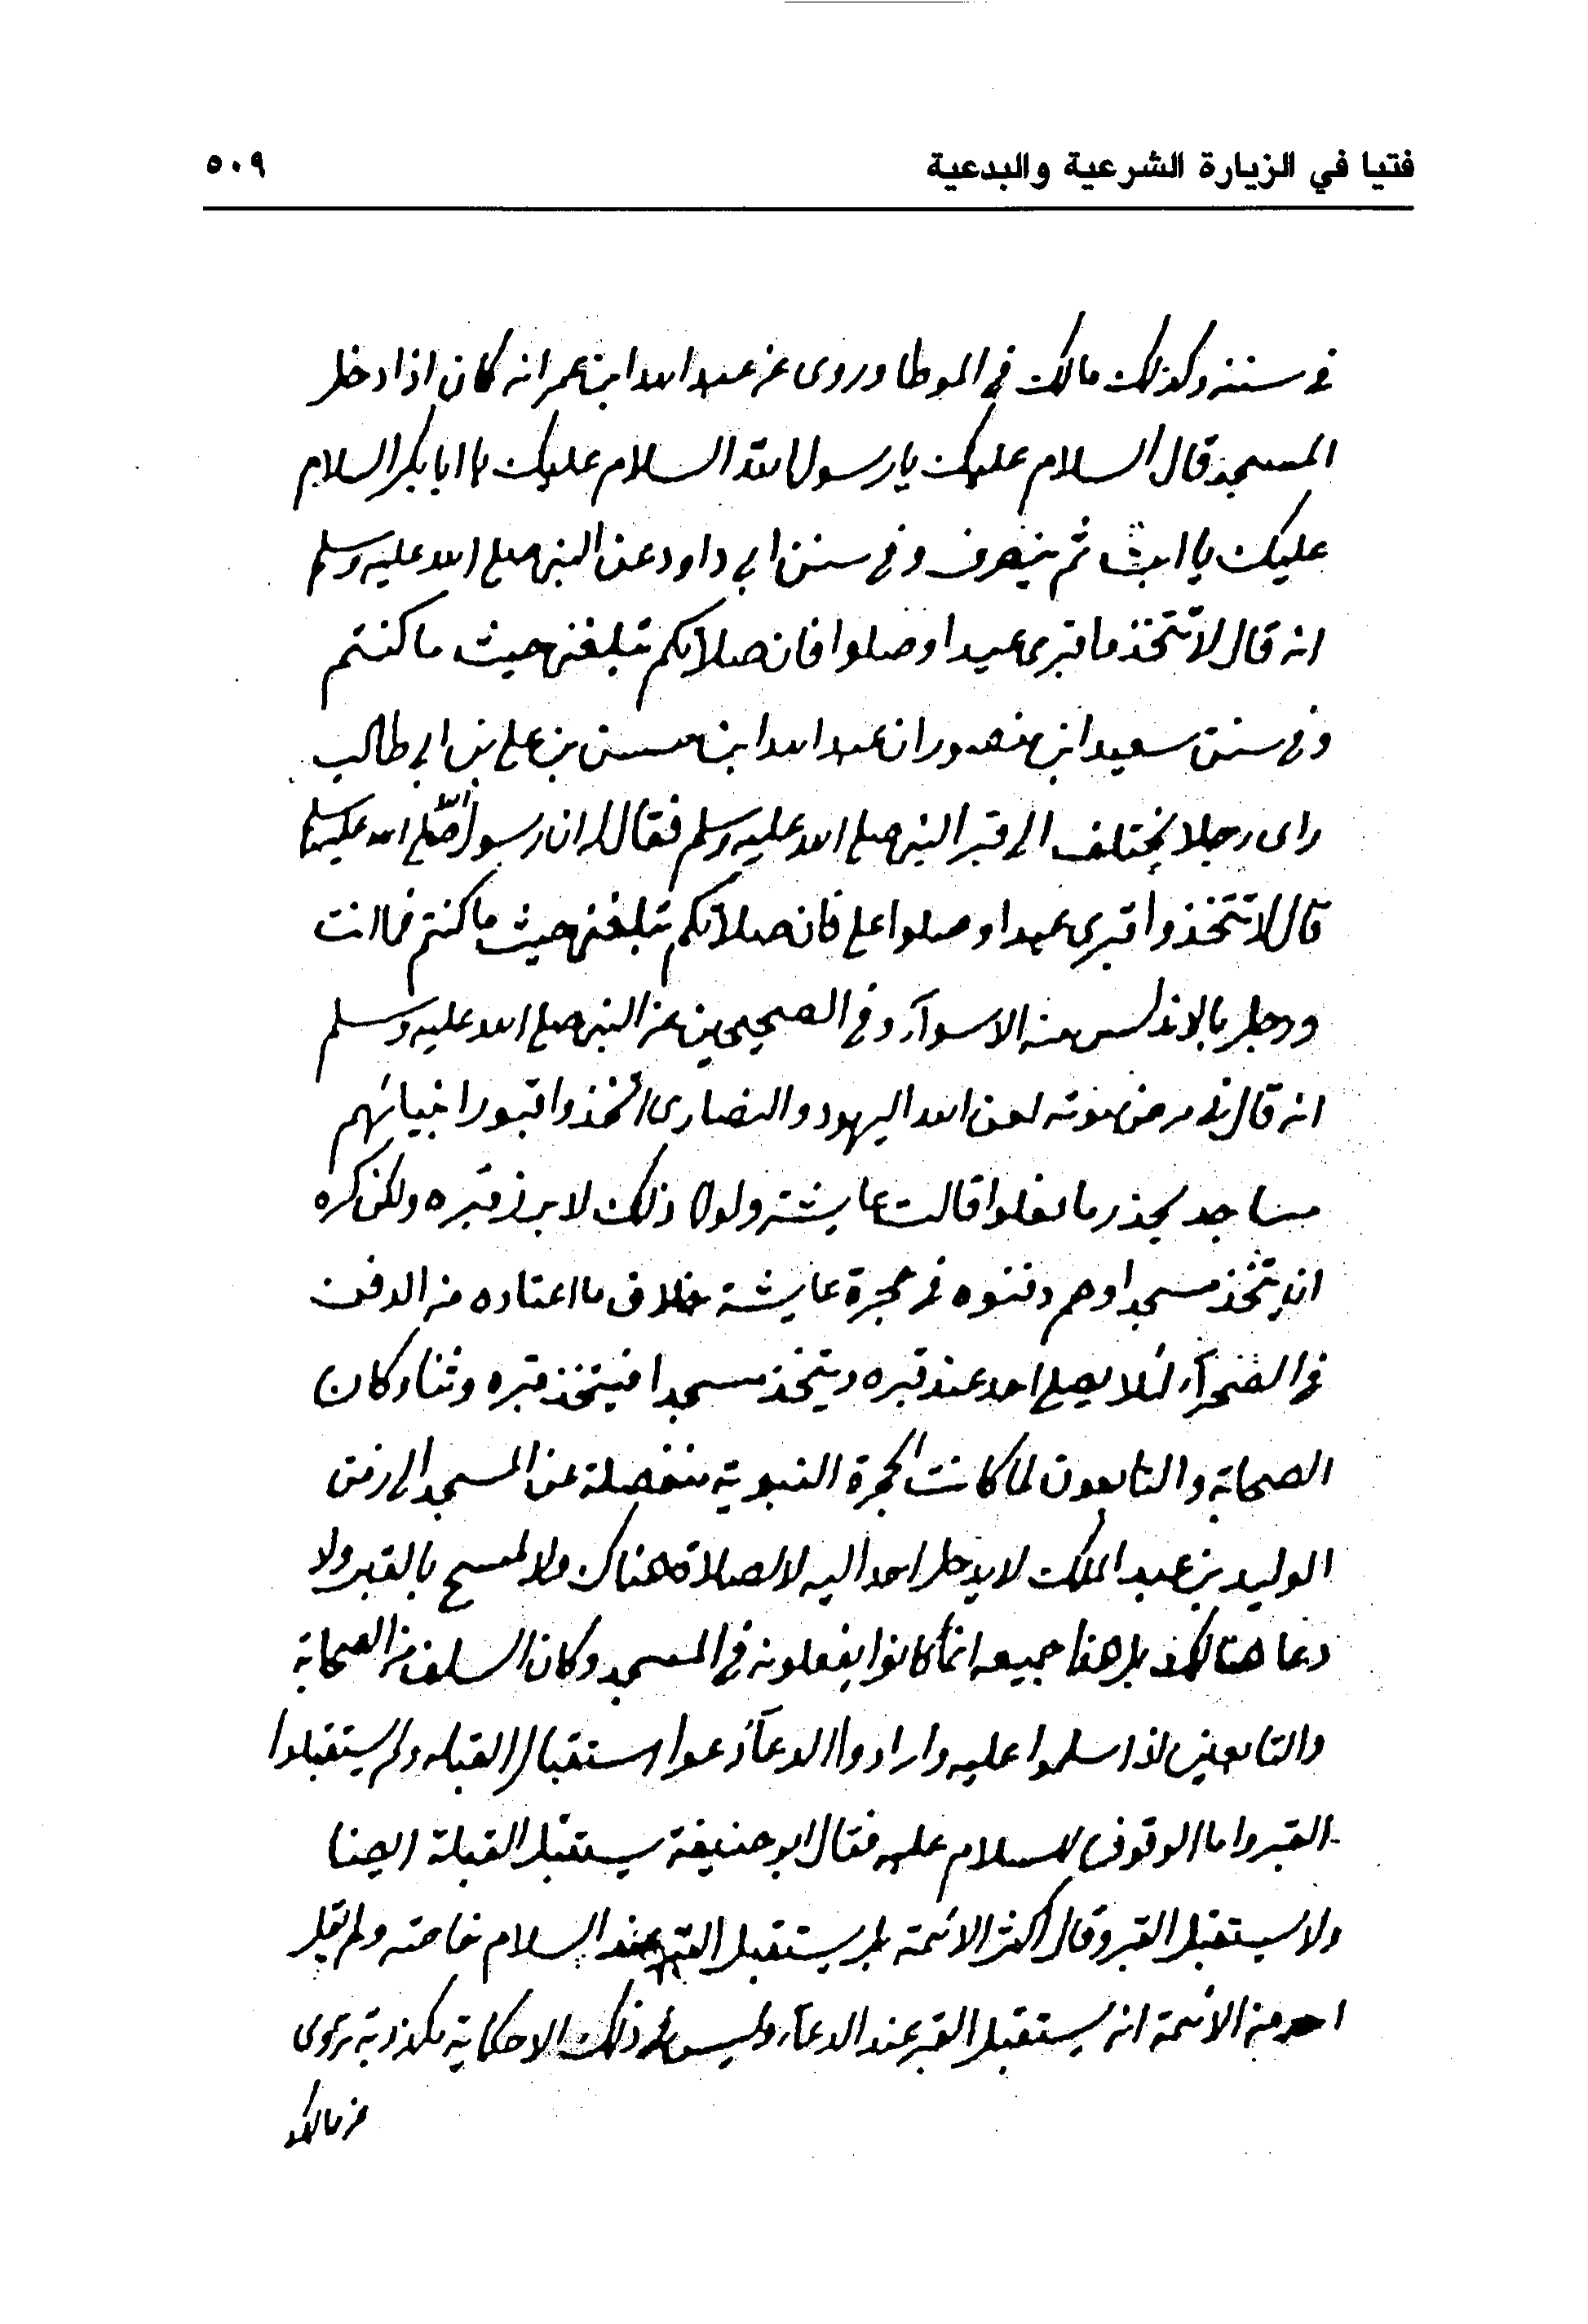 فتيا في الزيارة الشرعية والبدعية ٥٠٩
في سننه وكذلك مالك في الموطا وروى عن عبد الله ابن عمر انه كان اذا دخل
المسجد قال السلام عليك يا رسول الله السلام عليك يا ابا بكر السلام
عليك يا ابت ثم ينصرف وفي سنن ابي داود عن النبي صلى الله عليه وسلم
انه قال لا تتخذوا قبري عيدا وصلوا فان صلاتكم تبلغني حيث ما كنتم
وفي سنن سعيد ابن منصور ان عبد الله ابن حسن بن علي بن ابي طالب
راى رجلا يختلف الى قبر النبي صلى الله عليه وسلم فقال له ان رسول الله صلى الله عليه وسلم
قال لا تتخذوا قبري عيدا وصلوا علي فان صلاتكم تبلغني حيث ما كنتم فما انت
ورجل بالاندلس منه الا سوآء وفي الصحيحين عن النبي صلى الله عليه وسلم
انه قال في مرض موته لعن الله اليهود والنصارى اتخذوا قبور انبيائهم
مساجد يحذر ما فعلوا قالت عايشة ولولا ذلك لابرز قبره ولكن كره
ان يتخذ مسجدا وهم دفنوه في حجرة عايشة خلاف ما اعتاده من الدفن
في الصحرآء لئلا يصلي احد عند قبره ويتخذ مسجدا فيتخذ قبره وثنا وكان
الصحابة والتابعون لما كانت الحجرة النبوية منفصلة عن المسجد الى زمن
الوليد بن عبد الملك لا يدخل احد اليه لا لصلاة هناك ولا لمسح بالقبر ولا
دعا هنالك بل هذا جميعه انما كانوا يفعلونه في المسجد وكان السلف من الصحابة
والتابعين اذا سلموا عليه وارادوا الدعآء دعوا استقبال القبلة ولم يستقبلوا
القبر واما الوقوف للسلام عليه فقال ابو حنيفة يستقبل القبلة ايضا
ولا يستقبل القبر وقال اكثر الائمة بل يستقبل القبر عند السلام خاصة ولم يقل
احد من الائمة انه يستقبل القبر عند الدعآء وليس في ذلك الا حكاية مكذوبة تروى
عن مالك